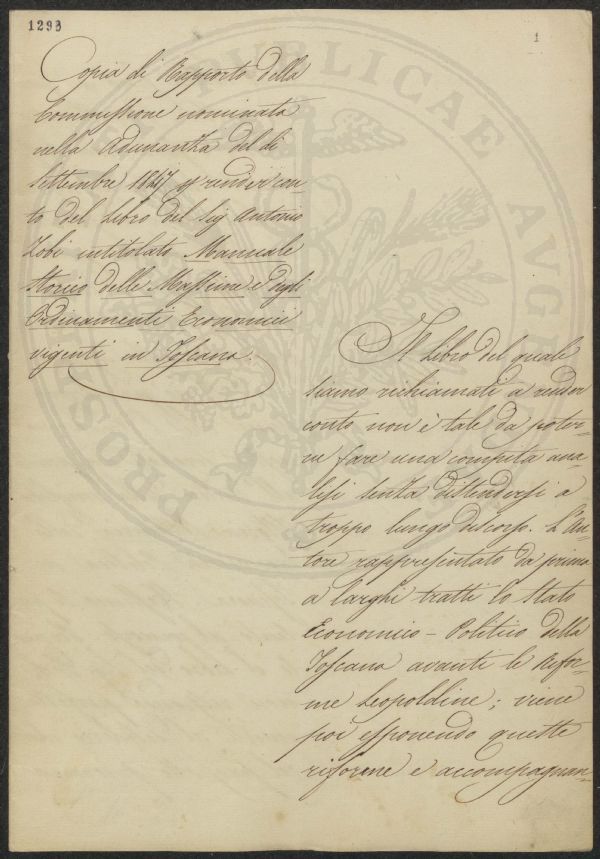 1293
1
Copia di Rapporto della
Commissione nominata
nella Adunanza del dì
Settembre 1847 p render con-
to del Libro del Sig Antonio
Zobi intitolato Manuale
Storico delle Massime e degli
Ordinamenti Economici
vigenti in Toscana.
Il Libro del quale
siamo richiamati a render
conto non è tale da poter-
ne fare una compita ana-
lisi senza distendersi a
troppo lungo discorso. L'Au-
tore rappresentato da prima
a larghi tratti lo Stato
Economico-Politico della
Toscana avanti le Rifor-
me Leopoldine; viene
poi esponendo queste
riforme e accompagnan-
PROSPERITATI PUBLICAE AUGE